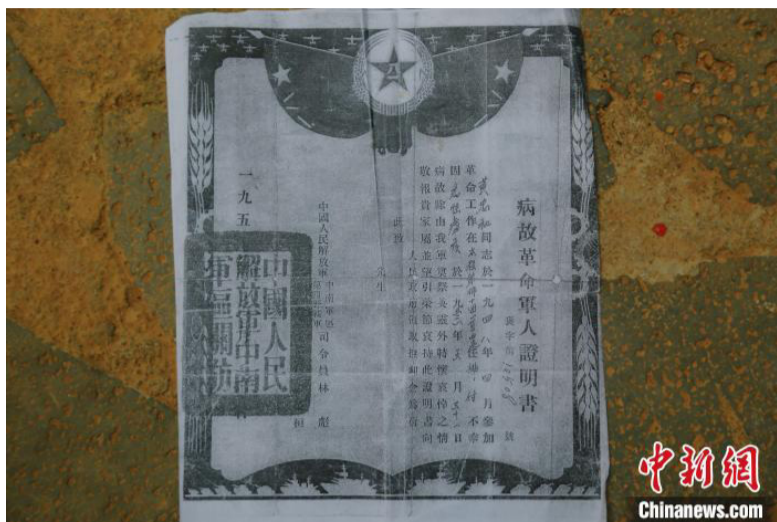 病故革命軍人證明書
字第號
同志於一九四八年四月參加
革命工作在任不幸
因於一九五年月三十一日
病故除由我軍奠祭英靈外特懷哀悼之情
敬報貴家屬並望引榮節哀持此證明書向
人民政府領取撫卹金爲荷
此致
先生
中國人民解放軍中南軍區司令員林彪
一九五
中國人民
解放軍中南
軍區關防
中新網
Chinanews.com